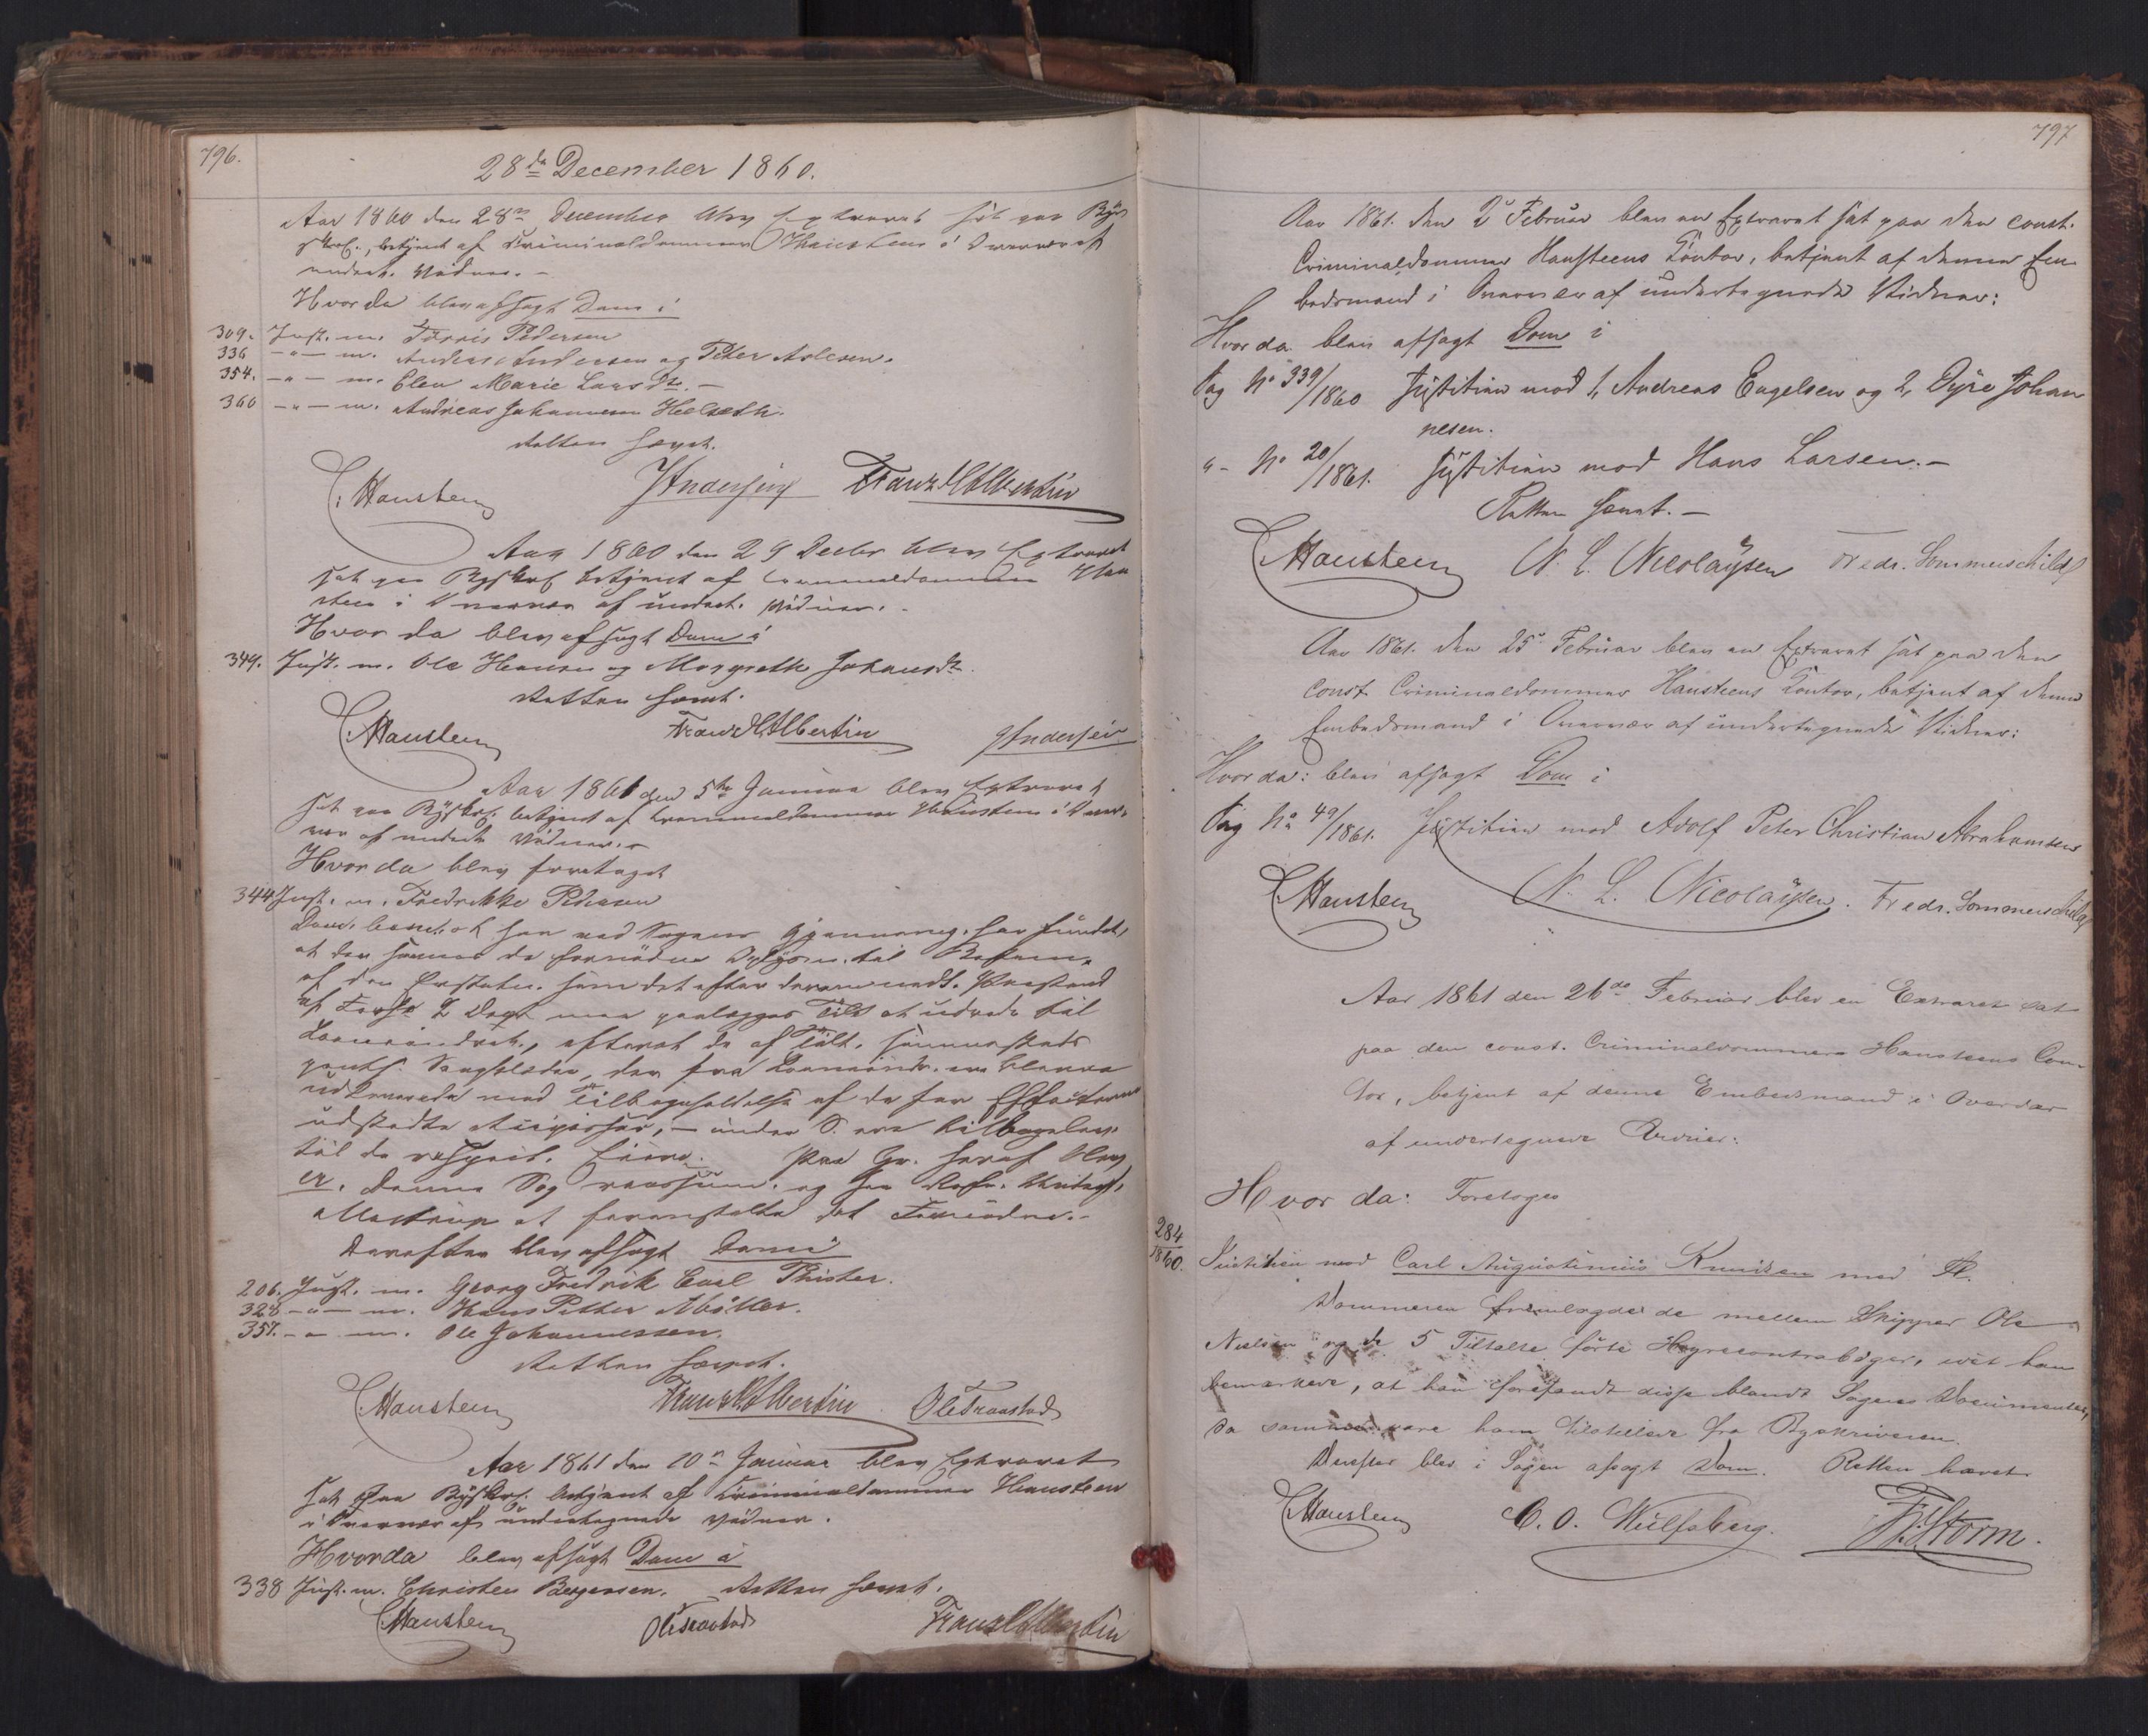 796.
28de December 1860.
Aar 1860 den 28de December blev Extraret sat paa Bys
skrf., betjent af Criminaldommer Hansteen i Overvær af
undert. Vidner. -
Hvor da blev afsagt Dom i
309. Just. m. Torris Pedersen
336 -"- m. Anders Andersen og Peter Aslesen.
354. -"- m. Elen Marie Larsdtr. -
360 -"- m. Andreas Johannesen Helseth.
Retten hævet.
C. Hansteen JAndersen Franz H Albertin
Aar 1860 den 29 Decbr blev Extraret
sat paa Byskrf betjent af Criminaldommer Han
steen i Overvær af undert. Vidner. -
Hvor da blev afsagt Dom i
349. Just. m. Ole Hansen og Margrethe Johansdr.
Retten hævet.
C. Hansteen Franz H Albertin JAndersen
Aar 1861 den 5te Januar blev Extraret
sat paa Byskrf. betjent af Criminaldommer Hansteen i Over-
vær af undert. Vidner. -
Hvor da blev foretaget
344 Just. m. Fredrikke Pedersen
Dom. bem. at han ved Sagens Gjennemg. har fundet,
at der savnes de fornødne Oplysn. til
af den Erstatn. som det efter
af maa paalægges Tilt. at udrede til
Laaneindretn., efterat de af Tilt.
pants. der fra Laaneindr. ere blevne
udleverede mod Tilbageholdelse af de for Effecterne
udstedte under S. ere tilbagelev.
til de respect. Eiere. Paa Gr. heraf blev
denne Sag
at foranstalte det Fornødne. -
Derefter blev afsagt Dom i
206. Just. m. Georg Fredrik Carl Thister.
328 -"- m. Hans Petter Møller.
357. -"- m. Ole Johannessen.
Retten hævet.
C. Hansteen Franz H Albertin Ole Traastad
Aar 1861 den 10de Januar blev Extraret
sat paa Byskrf. betjent af Criminaldommer Hansteen
i Overvær af undertegnede Vidner.
Hvor da blev afsagt Dom i
338 Just. m. Christen Børgersen. Retten hævet.
C. Hansteen Ole Traastad Franz H Albertin
797
Aar 1861. den 2 Februar blev en Extraret sat paa den const.
Criminaldommer Hansteens Contor, betjent af denne Em
bedsmand i Overvær af undertegnede Vidner:
Hvor da blev afsagt Dom i
Sag No 339/1860 Justitien mod 1, Andreas Engelsen og 2, Dyre Johan
nesen.
"- No 20/1861. Justitien mod Hans Larsen. -
Retten hævet. -
C. Hansteen N. L. Nicolaysen Fredr. Sommerschild
Aar 1861. den 25 Februar blev en Extraret sat paa den
const. Criminaldommer Hansteens Contor, betjent af denne
Embedsmand i Overvær af undertegnede Vidner:
Hvor da: blev afsagt Dom i
Sag No 49/1861. Justitien mod Adolf Peter Christian Abrahamsen
C. Hansteen N. L. Nicolaysen. Fredr. Sommerschild
Aar 1861 den 26de Februar blev en Extraret sat
paa den const. Criminaldommer Hansteens Con-
tor, betjent af denne Embedsmand i Overvær
af undertegnede Vidner:
Hvor da: Foretoges
284/1860. Justitien mod Carl Augustinius Knudsen med Fl.
Dommeren fremlagde de mellem Skipper Ole
Nielsen og de 5 Tiltalte førte Hyrecontrabøger, idet han
bemærkede, at han forefandt disse blandt Sagens Documenter,
da samme vare ham tilstillede fra Byskriveren.
Derefter blev i Sagen afsagt Dom. Retten hævet
C. Hansteen C. O. Wulfsberg. F. Storm.